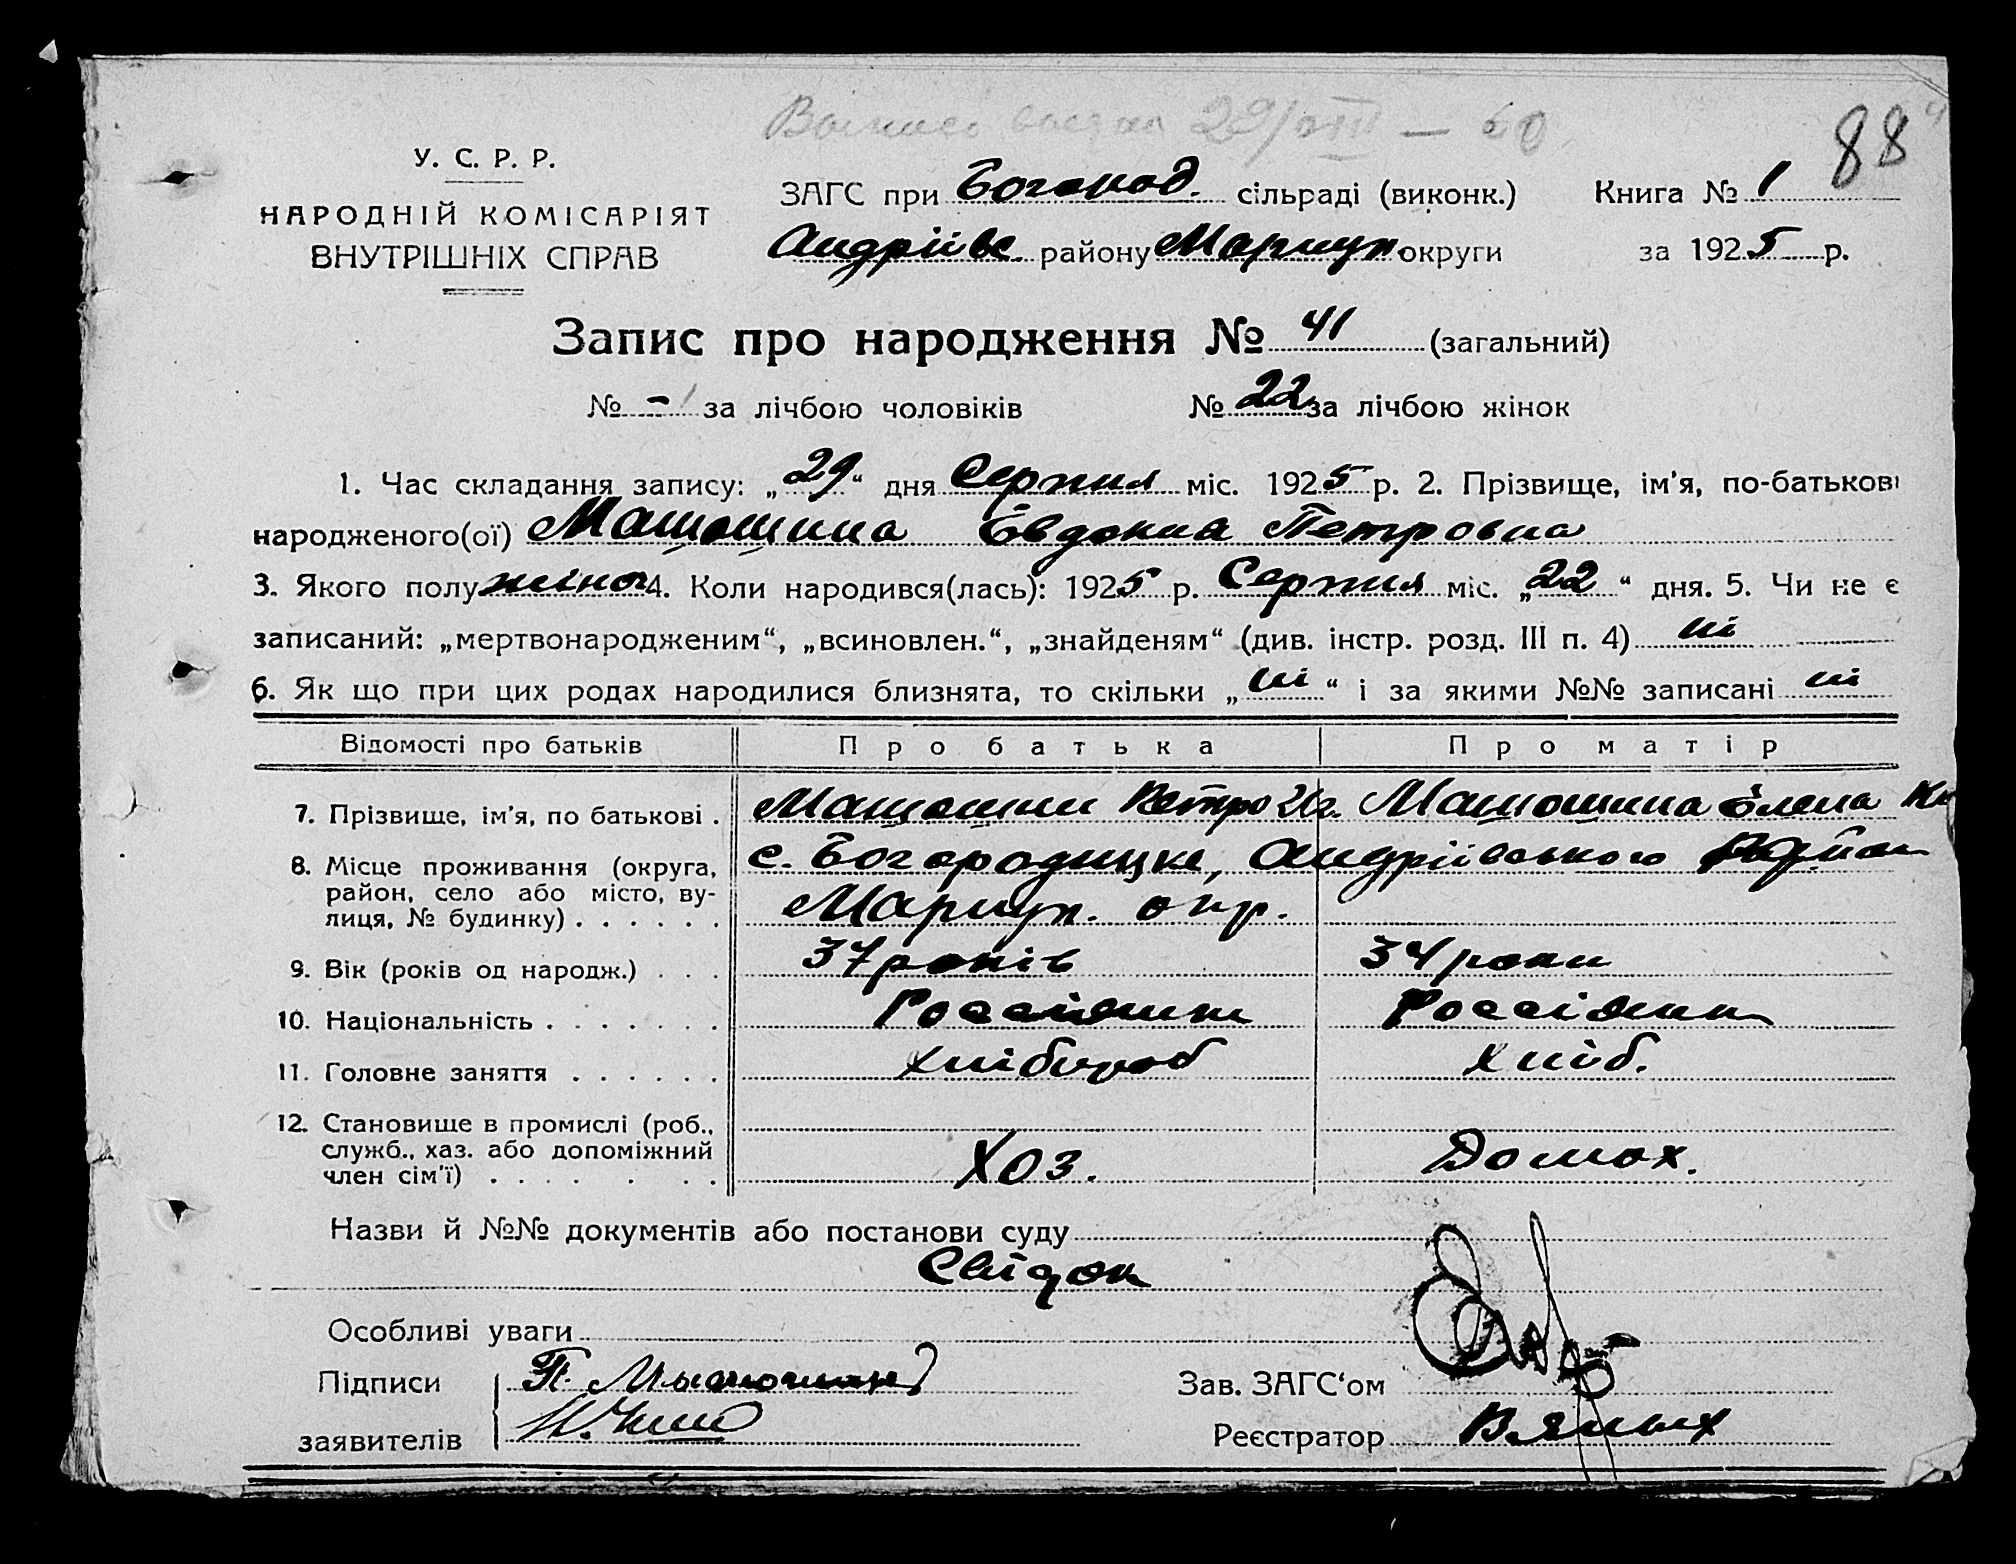 29/VIII — 60
88
У. С. Р. Р.
НАРОДНІЙ КОМІСАРІЯТ
ВНУТРІШНІХ СПРАВ
ЗАГС при Богород. сільраді (виконк.) Книга № 1
Андріївс. району Мариуп. округи за 1925 р.
Запис про народження № 41 (загальний)
№ - за лічбою чоловіків № 22 за лічбою жінок
1. Час складання запису: „29“ дня Серпня міс. 1925 р. 2. Прізвище, ім'я, по-батькові
народженого(ої) Матюшина Евдокия Петровна
3. Якого полу жіноч 4. Коли народився(лась): 1925 р. Серпня міс. „22“ дня. 5. Чи не є
записаний: „мертвонародженим“, „всиновлен.“, „знайденям“ (див. інстр. розд. III п. 4) ні
6. Як що при цих родах народилися близнята, то скільки „ні“ і за якими №№ записані ні
Відомості про батьків Про батька Про матір
7. Прізвище, ім'я, по батькові . Матюшин Петро Матюшина Єлена
8. Місце проживання (округа, район, село або місто, вулиця, № будинку) . . . . . . с. Богородицке, Андріївського Район
Мариуп. окр.
9. Вік (років од народж.) . . . 37 років 34 роки
10. Національність . . . . . . . Россіянин Россіянин
11. Головне заняття . . . . . . Хлібороб Хліб.
12. Становище в промислі (роб., служб., хаз. або допоміжний член сім'ї) . . . . . . . Хоз. Домох.
Назви й №№ документів або постанови суду
Свідок
Особливі уваги
Підписи П. Матюшин Зав. ЗАГС'ом
заявителів Реєстратор